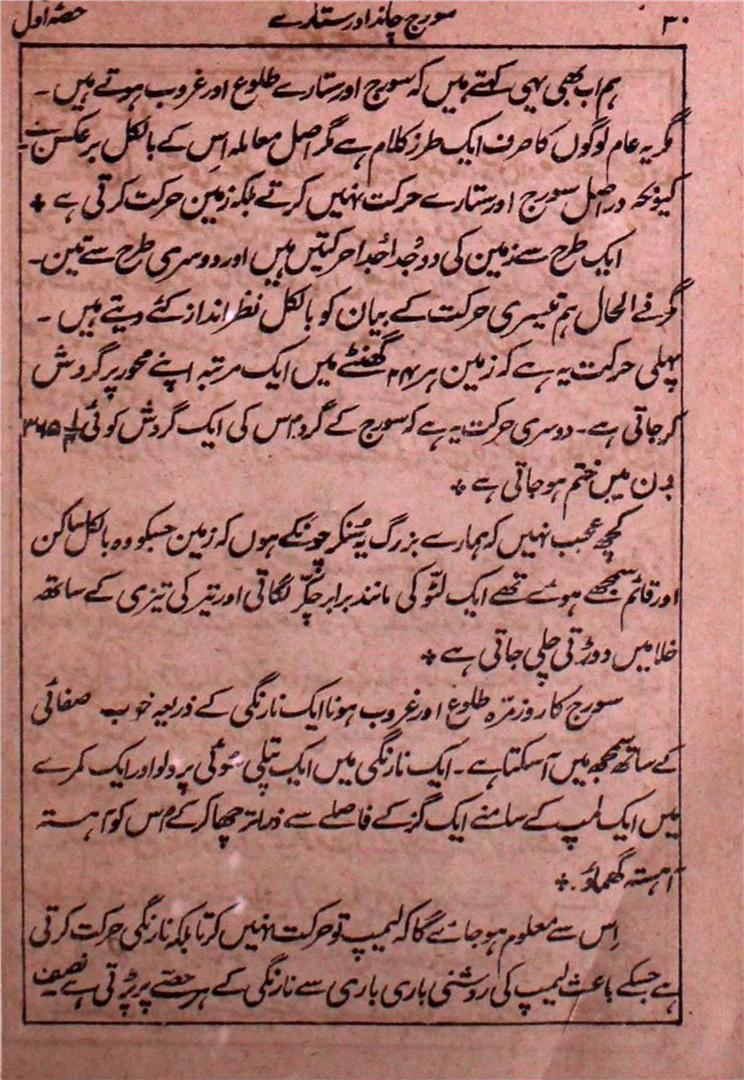 ۳۰ سورج چاند اور ستارے حصّہ اول
ہم اب بھی یہی کہتے ہیں کہ سورج اور ستارے طلوع اور غروب ہوتے ہیں ۔
مگر یہ عام لوگوں کا صرف ایک طرز کلام ہے مگر اصل معاملہ اِس کے بالکل برعکس ہے ۔
کیونکہ دراصل سورج اور ستارے حرکت نہیں کرتے بلکہ زمین حرکت کرتی ہے +
ایک طرح سے زمین کی دو جُدا جُدا حرکتیں ہیں اور دوسری طرح سے تین ۔
مگر فے الحال ہم تیسری حرکت کے بیان کو بالکل نظر انداز کئے دیتے ہیں ۔
پہلی حرکت یہ ہے کہ زمین ہر ۲۴ گھنٹے میں ایک مرتبہ اپنے محور پر گردش
کر جاتی ہے ۔ دوسری حرکت یہ ہے کہ سورج کے گرد اس کی ایک گردش کوئی ۳۶۵ ۱/۴
دن میں ختم ہو جاتی ہے +
کچھ عجب نہیں کہ ہمارے بزرگ یہ سُنکر چونکے ہوں کہ زمین جسکو وہ بالکل ساکن
اور قائم سمجھے ہوئے تھے ایک لٹو کی مانند برابر چکّر لگاتی اور تیر کی تیزی کے ساتھ
خلا میں دوڑتی چلی جاتی ہے +
سورج کا روزمرّہ طلوع اور غروب ہونا ایک نارنگی کے ذریعہ خوب صفائی
کے ساتھ سمجھ میں آسکتا ہے ۔ ایک نارنگی میں ایک پتلی سُوئی پرولو اور ایک کمرے
میں ایک لمپ کے سامنے ایک گز کے فاصلے سے ذرا ترچھا کر کے اس کو آہستہ
آہستہ گھماؤ ۔ +
اِس سے معلوم ہو جائے گا کہ لیمپ تو حرکت نہیں کرتا بلکہ نارنگی حرکت کرتی
ہے جسکے باعث لیمپ کی روشنی باری باری سے نارنگی کے ہر حصّے پر پڑتی ہے نصف